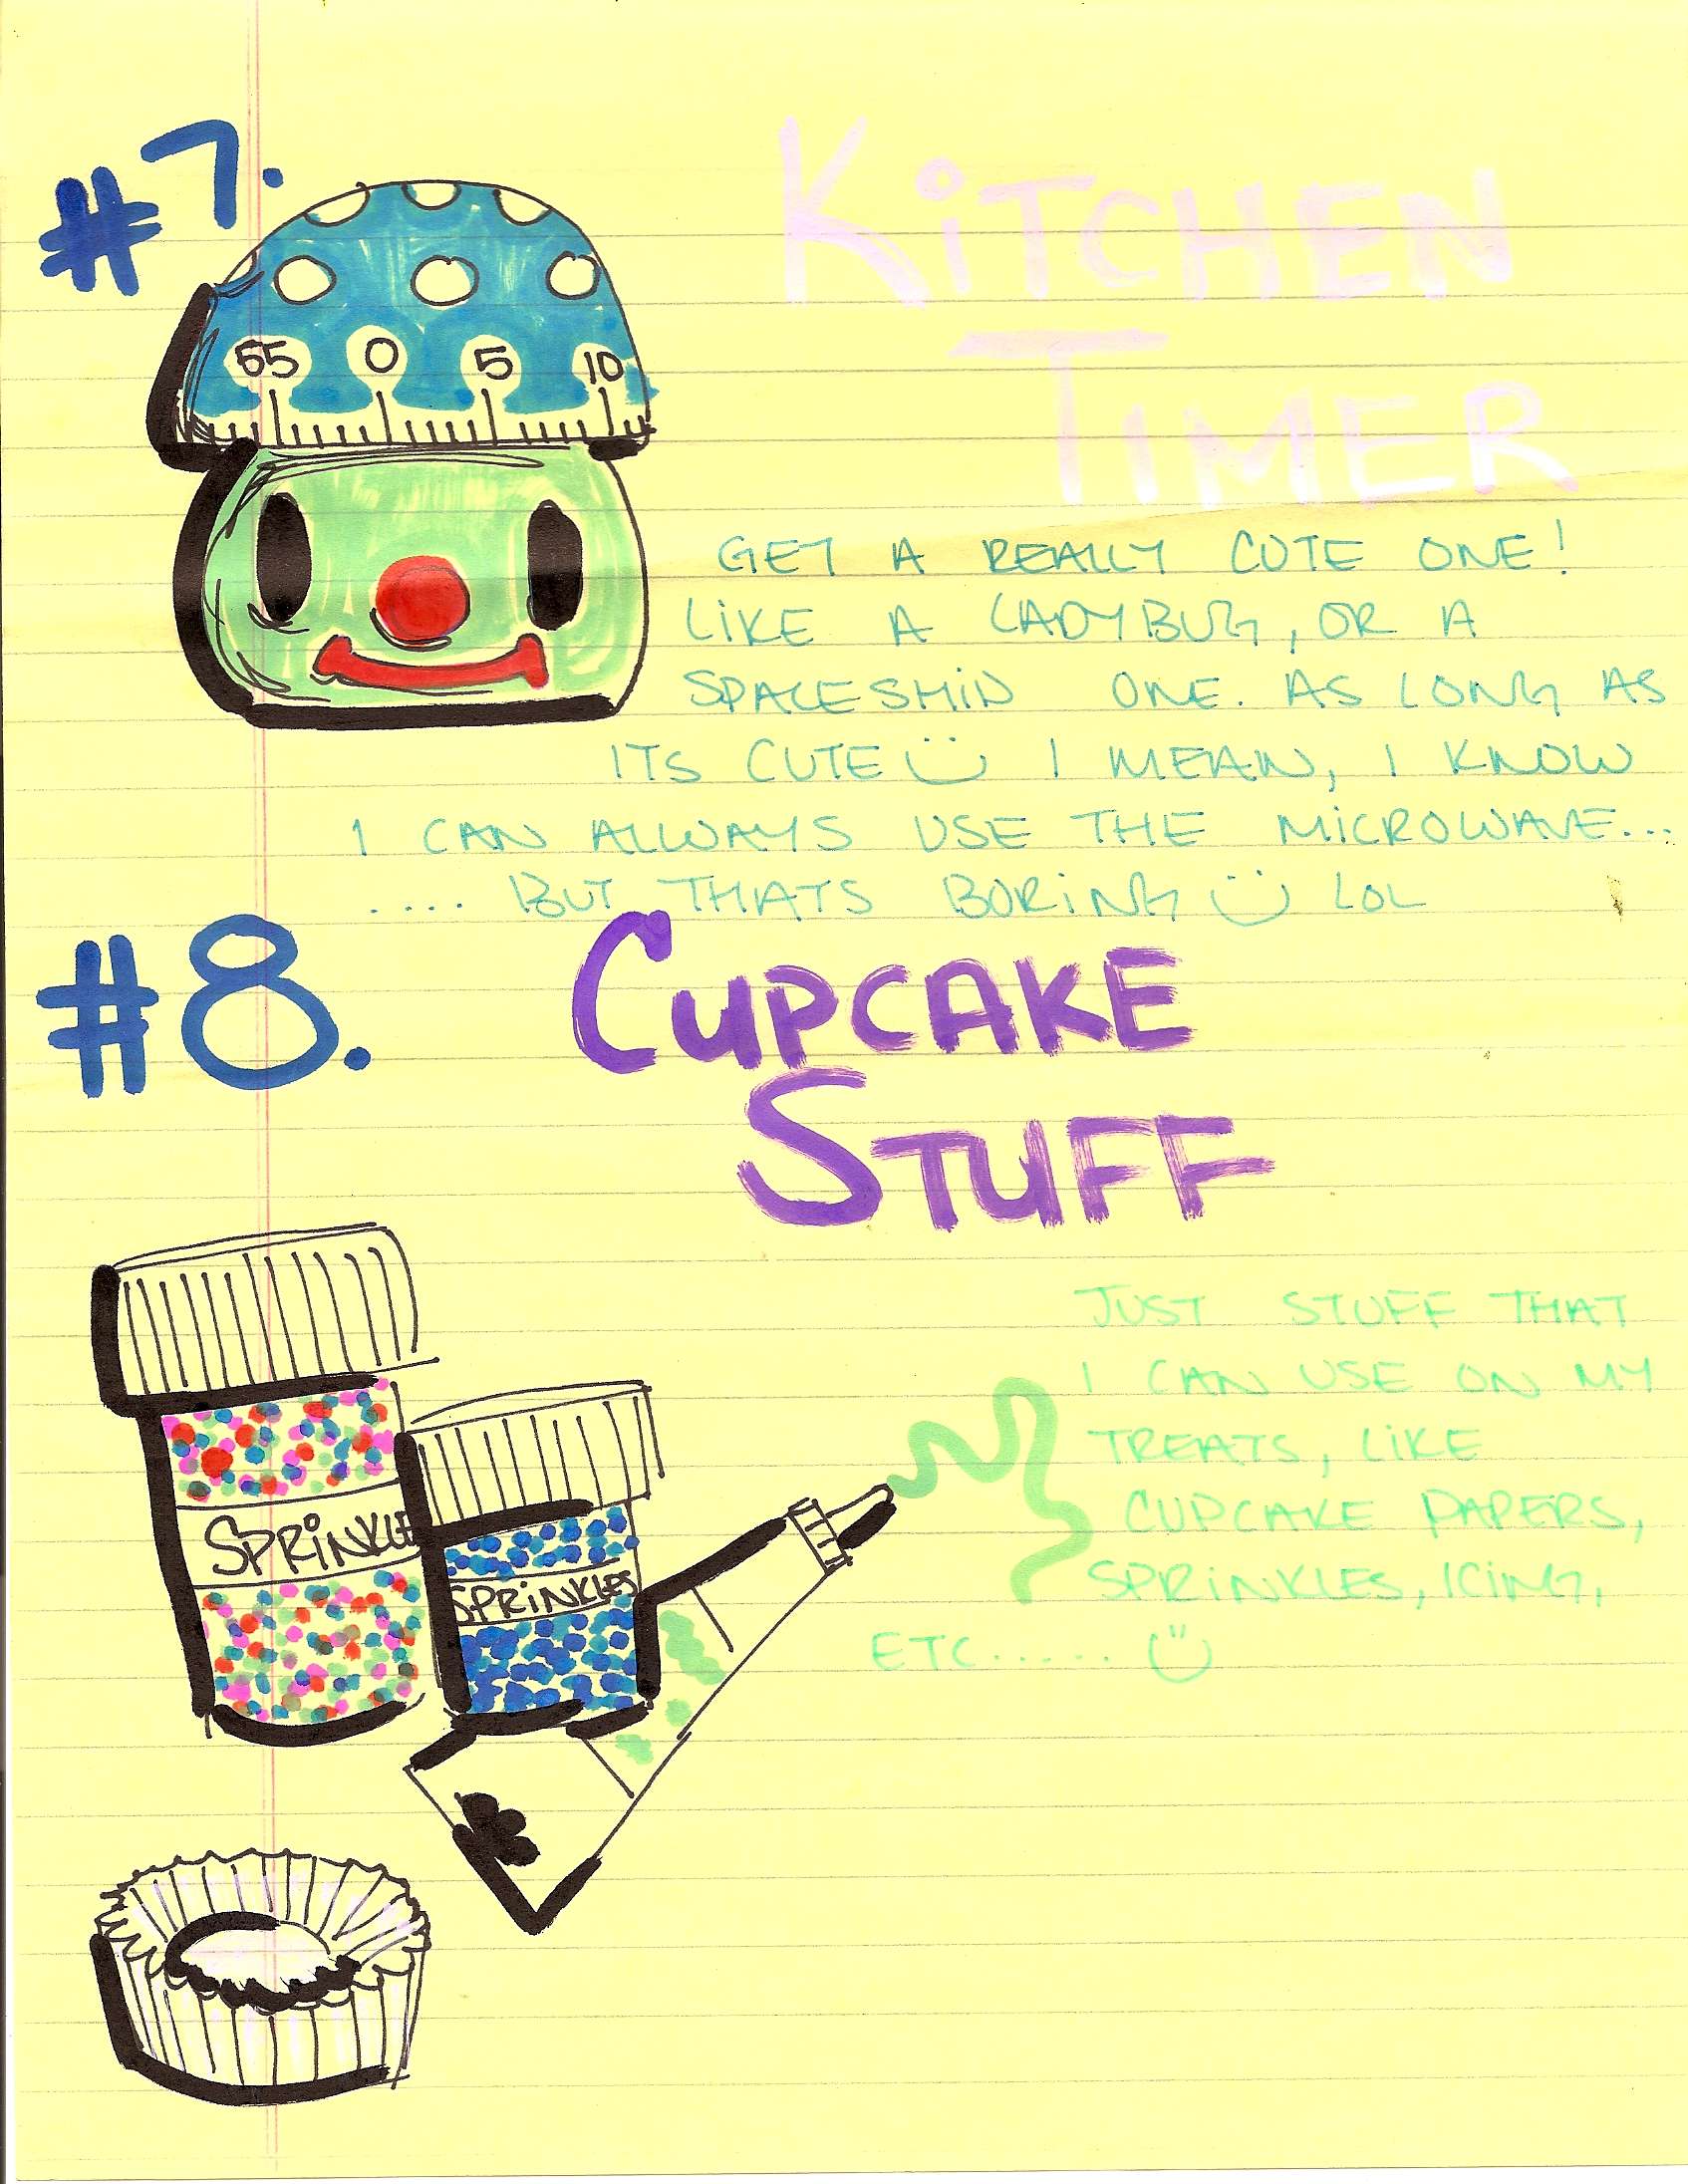 #7.
KiTCHEN
TIMER
55 0 5 10
GET A REALLY CUTE ONE!
LiKE A LADYBUG, OR A
SPACESHiP ONE. AS LONG AS
ITS CUTE I MEAN, I KNOW
I CAN ALWAYS USE THE MiCROWAVE...
.... BUT THATS BORiNG LOL
#8.
CUPCAKE
STUFF
JUST STUFF THAT
I CAN USE ON MY
TREATS, LiKE
CUPCAKE PAPERS,
SPRiNKLES, ICiNG,
ETC.....
SPRiNKLE
SPRiNKLES